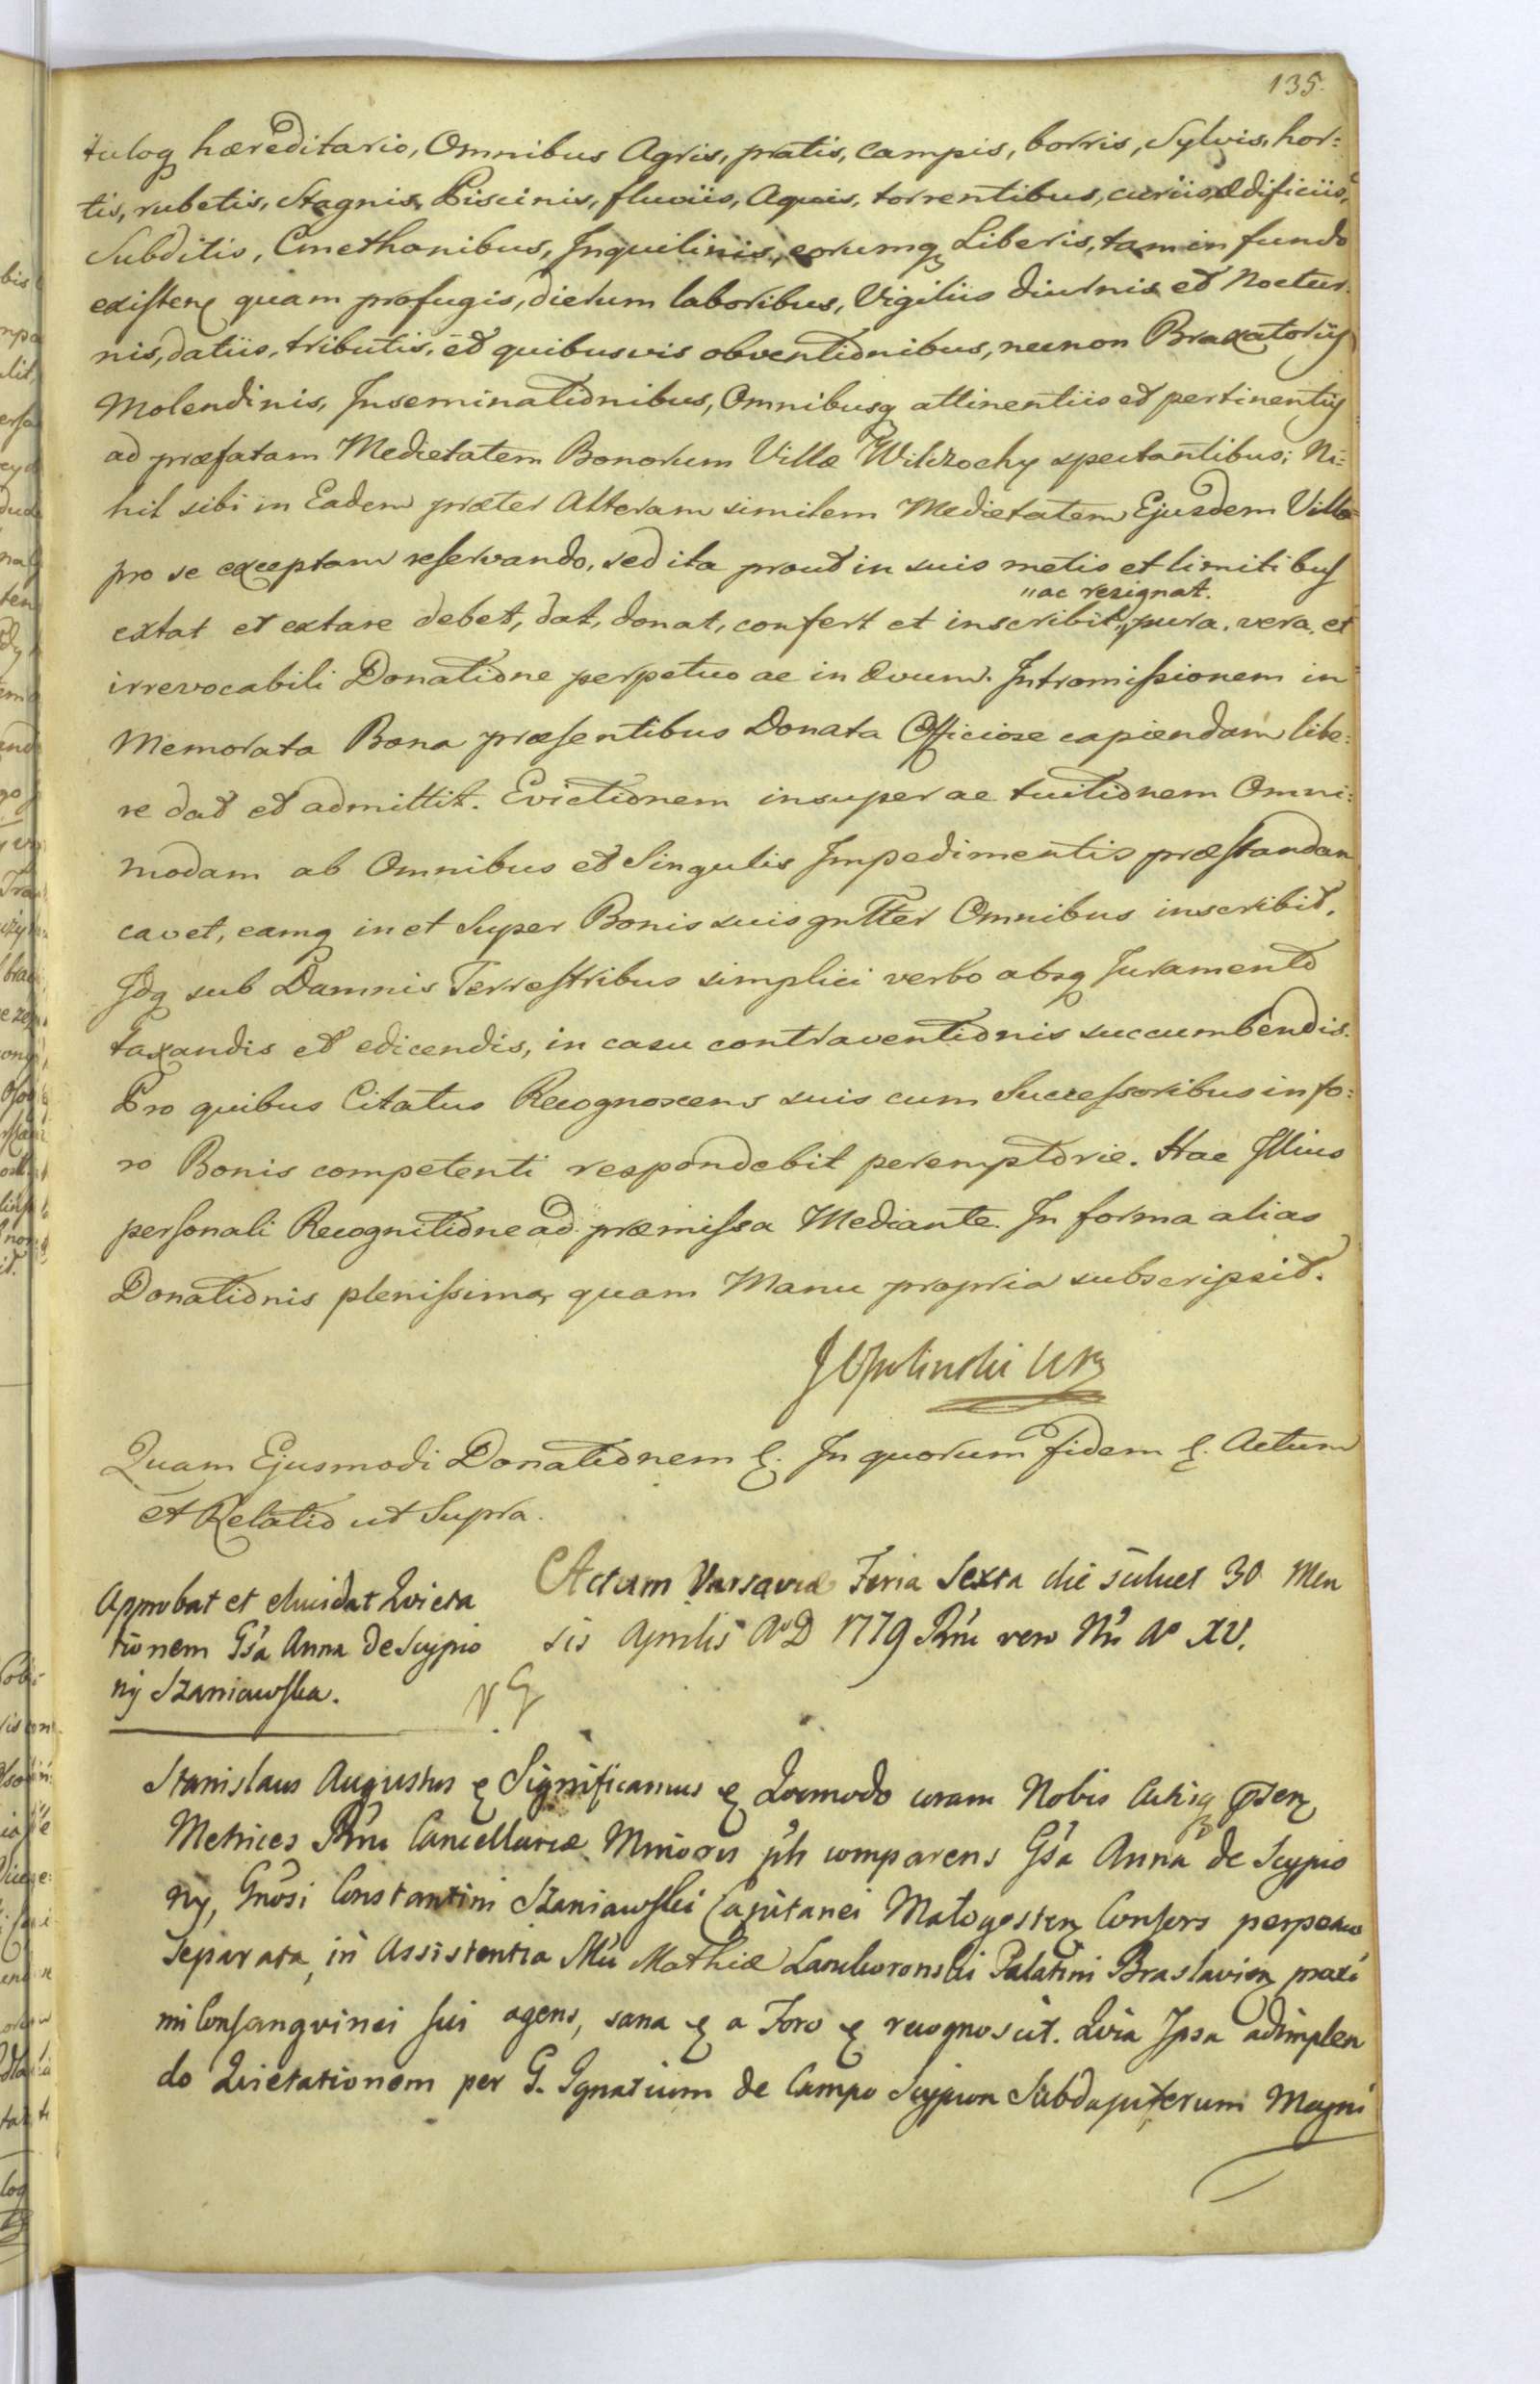 135.
tuloq hæreditario, Omnibus Agris, pratis, campis, borris, Sylvis, hor:
tis, rubetis, Stagnis, Piscinis, fluviis, Aquis, torrentibus, curiis, Ædificiis,
Subditis, Cmethonibus, Inquilinis, eorumq Liberis, tam in fundo
existen quam profugis, dierum laboribus, Vigiliis diurnis et Noctur:
nis, datiis, tributis, et quibusvis obventionibus, necnon Braxatoriis
Molendinis, Inseminationibus, Omnibusq attinentiis et pertinentiis
ad præfatam Medietatem Bonorum Villæ Wilkzochy spectantibus; Ni:
hil sibi in Eadem præter Alteram similem Medietatem Ejusdem Villæ
pro se exceptam reservando, sed ita prout in suis metis et limitibus
"ac resignat.
extat et extare debet, dat, donat, confert et inscribit," pura, vera, et
irrevocabili Donatione perpetuo ac in Ævum. Intromissionem in
Memorata Bona præsentibus Donata Officiose capiendam libe:
re dat et admittit. Evictionem insuper ac tuitionem Omni:
modam ab Omnibus et Singulis Impedimentis præstandam
cavet, eamq in et Super Bonis suis gnlter Omnibus inscribit.
Idq sub Damnis Terrestribus simplici verbo absq Juramento
taxandis et edicendis, in casu contraventionis succumbendis.
Pro quibus Citatus Recognoscens suis cum Successoribus in fo:
ro Bonis competenti respondebit peremptorie. Hac Illius
personali Recognitione ad præmissa Mediante. In forma alias
Donationis plenissima, quam Manu propria subscripsit.
J Opolinski
Quam Ejusmodi Donationem &. In quorum fidem &. Actum
et Relatio ut Supra.
Approbat et elucidat Qvieta
tionem Gsa Anna de Scypio
nÿ Szaniawska.
Actum Varsaviæ Feria Sexta die scilicet 30 Men
sis Aprilis A°D 1779 Rni vero Nri A° XV.
Stanislaus Augustus & Significamus & Qvomodo coram Nobis Actisq pten
Metrices Rni Cancellariæ Minoris plr comparens Gsa Anna de Scypio
ny, Gnosi Constantini Szaniawski Capitanei Małogosten Consors perpetuo
separata, in Assistentia Mci Mathiæ Lanckoronski Palatini Braslavien proxi
mi Consangvinei sui agens, sana & a Foro & recognoscit. Qvia Ipsa adimplen
do Qvietationem per G. Ignatium de Campo Scypion Subdapiferum Magni